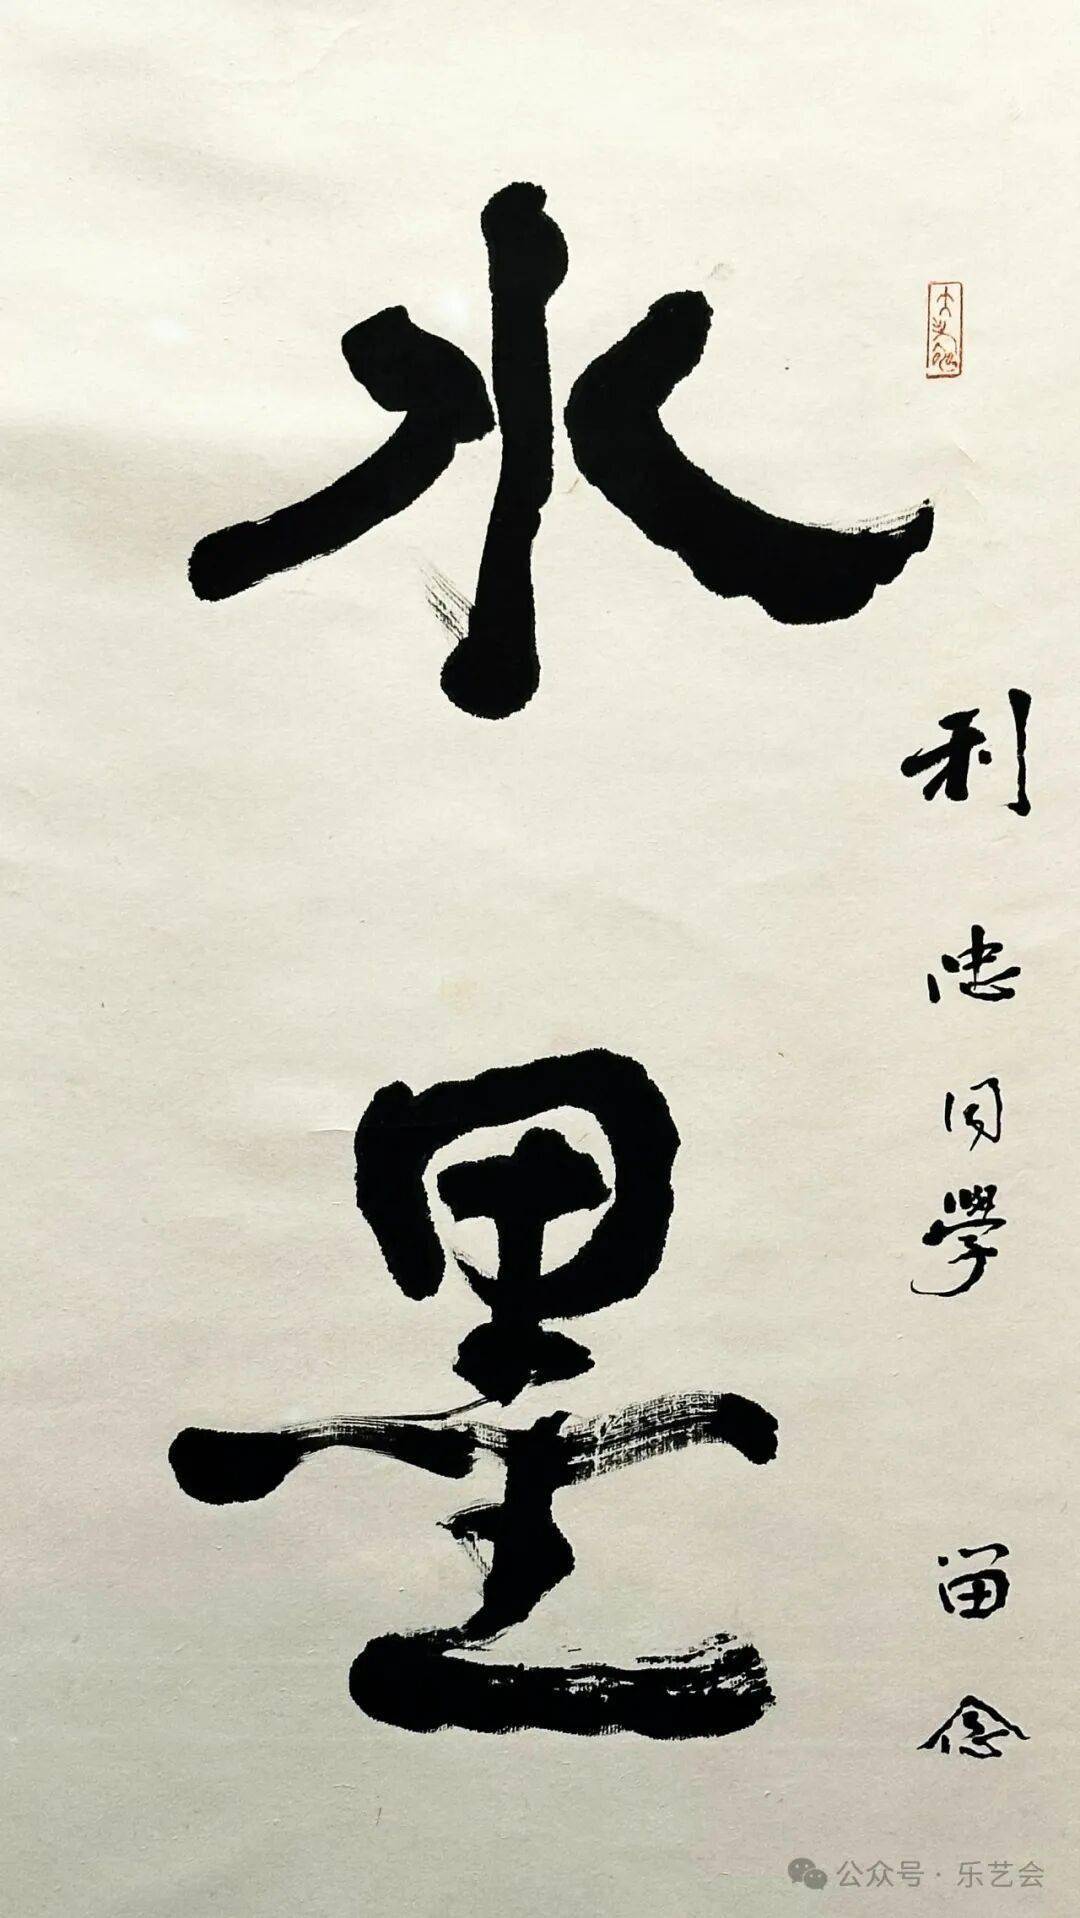 水墨
利忠同學
留念
公众号·乐艺会